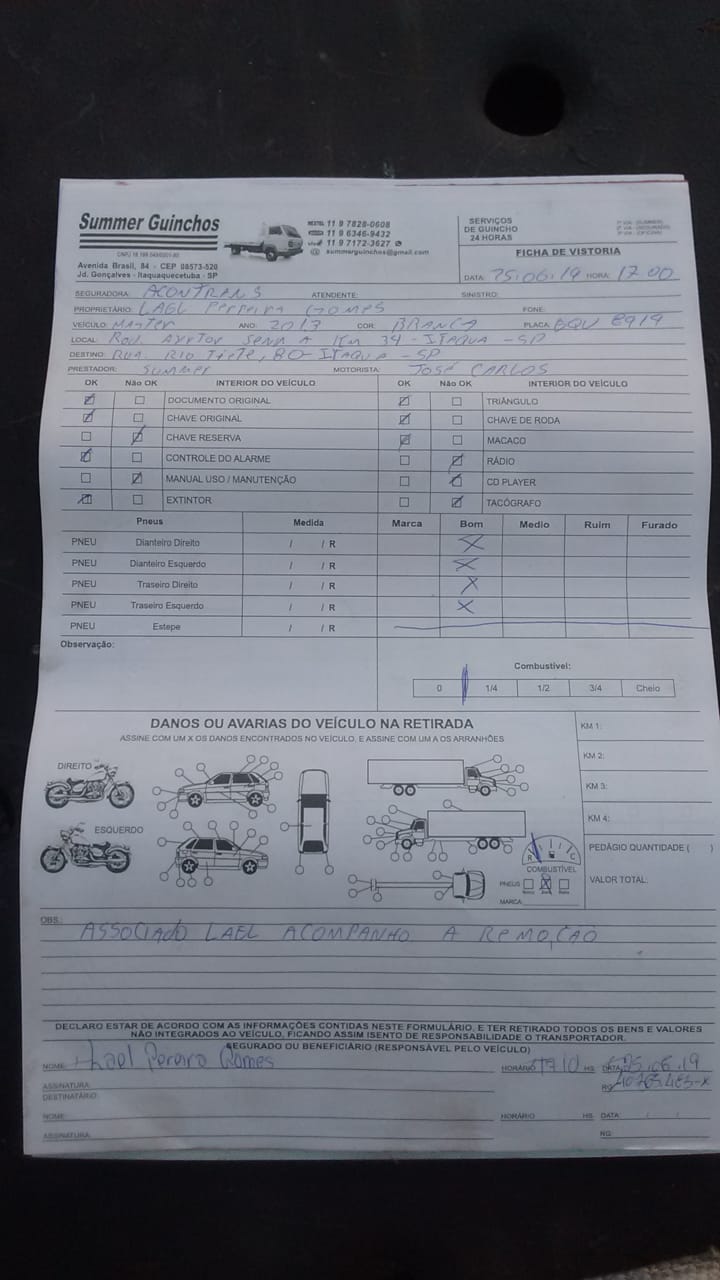 Summer Guinchos
NEXTEL 11 9 7828-0608
11 9 6346-9432
vivo 11 9 7172-3627
@ summerguinchos@gmail.com
Avenida Brasil, 84 - CEP 08573-520
Jd. Gonçalves - Itaquaquecetuba - SP
SERVIÇOS
DE GUINCHO
24 HORAS
FICHA DE VISTORIA
DATA: 25.06.19 HORA: 17 00
SEGURADORA: ACONTRENS ATENDENTE: SINISTRO:
PROPRIETÁRIO: LAEL Perreira GOMES FONE:
VEÍCULO: Master ANO: 2013 COR: BRANCA PLACA:
LOCAL: Rod. Ayrton Senna KM 34 - ITAQUA - SP
DESTINO: RUA. RIO Tiete, 80 - ITAQUA - SP
PRESTADOR: Summer MOTORISTA: JOSÉ CARLOS
OK Não OK INTERIOR DO VEÍCULO OK Não OK INTERIOR DO VEÍCULO
DOCUMENTO ORIGINAL TRIÂNGULO
CHAVE ORIGINAL CHAVE DE RODA
CHAVE RESERVA MACACO
CONTROLE DO ALARME RÁDIO
MANUAL USO / MANUTENÇÃO CD PLAYER
EXTINTOR TACÓGRAFO
Pneus Medida Marca Bom Medio Ruim Furado
PNEU Dianteiro Direito / / R X
PNEU Dianteiro Esquerdo / / R X
PNEU Traseiro Direito / / R X
PNEU Traseiro Esquerdo / / R X
PNEU Estepe / / R
Observação:
Combustível:
0 1/4 1/2 3/4 Cheio
DANOS OU AVARIAS DO VEÍCULO NA RETIRADA
ASSINE COM UM X OS DANOS ENCONTRADOS NO VEÍCULO, E ASSINE COM UM A OS ARRANHÕES
DIREITO
ESQUERDO
KM 1:
KM 2:
KM 3:
KM 4:
PEDÁGIO QUANTIDADE ( )
VALOR TOTAL:
R C
COMBUSTÍVEL
PNEUS
MARCA
OBS.:
ASSOCIADO LAEL ACOMPANHO A REMOÇÃO
DECLARO ESTAR DE ACORDO COM AS INFORMAÇÕES CONTIDAS NESTE FORMULÁRIO, E TER RETIRADO TODOS OS BENS E VALORES
NÃO INTEGRADOS AO VEÍCULO, FICANDO ASSIM ISENTO DE RESPONSABILIDADE O TRANSPORTADOR.
SEGURADO OU BENEFICIÁRIO (RESPONSÁVEL PELO VEÍCULO)
NOME: Lael Pereira Gomes HORÁRIO 1710 HS. DATA: 25.06.19
ASSINATURA:
DESTINATÁRIO:
NOME: HORÁRIO HS. DATA: / /
ASSINATURA: